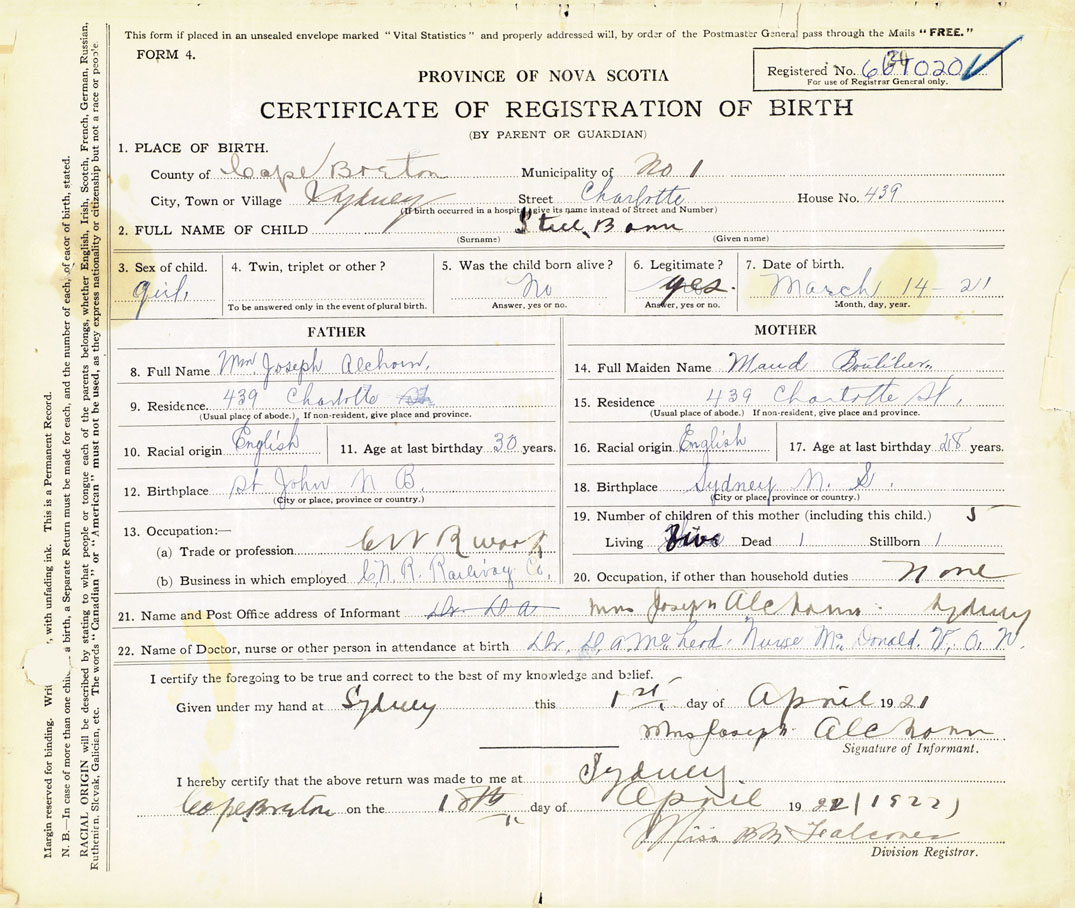 This form if placed in an unsealed envelope marked "Vital Statistics" and properly addressed will, by order of the Postmaster General pass through the Mails "FREE."
FORM 4.
Registered No.
For use of Registrar General only.
PROVINCE OF NOVA SCOTIA
CERTIFICATE OF REGISTRATION OF BIRTH
(BY PARENT OR GUARDIAN)
1. PLACE OF BIRTH.
County of Cape Breton Municipality of No 1
City, Town or Village Sydney Street Charlotte House No. 439
(If birth occurred in a hospital give its name instead of Street and Number)
2. FULL NAME OF CHILD Still Born
(Surname) (Given name)
3. Sex of child. 4. Twin, triplet or other? 5. Was the child born alive? 6. Legitimate? 7. Date of birth.
girl No yes. March 14-21
To be answered only in the event of plural birth. Answer, yes or no. Answer, yes or no. Month, day, year.
FATHER
8. Full Name Joseph
9. Residence. 439 Charlotte St
(Usual place of abode.) If non-resident, give place and province.
10. Racial origin English 11. Age at last birthday 30 years.
12. Birthplace St John N B.
(City or place, province or country.)
13. Occupation:—
(a) Trade or profession
(b) Business in which employed C.N.R. Railway Co.
MOTHER
14. Full Maiden Name Maud Boutilier
15. Residence 439 Charlotte St,
(Usual place of abode.) If non-resident, give place and province.
16. Racial origin English 17. Age at last birthday 28 years.
18. Birthplace Sydney N. S.
(City or place, province or country.)
19. Number of children of this mother (including this child.) 5
Living five Dead 1 Stillborn 1
20. Occupation, if other than household duties None
21. Name and Post Office address of Informant Dr. D A Mrs Joseph Sydney
22. Name of Doctor, nurse or other person in attendance at birth Dr. D. A. McLeod. Nurse McDonald. V. O. N.
I certify the foregoing to be true and correct to the best of my knowledge and belief.
Given under my hand at Sydney this 1st day of April 1921
Mrs Joseph
Signature of Informant.
I hereby certify that the above return was made to me at Sydney.
Cape Breton on the 18th day of April 1922 (1922)
Miss B M Falconer
Division Registrar.
Margin reserved for binding. with unfading ink. This is a Permanent Record.
N. B.—In case of more than one a birth, a Separate Return must be made for each, and the number of each, of birth, stated.
RACIAL ORIGIN will be described by stating to what people or tongue each of the parents belongs, whether English, Irish, Scotch, French, German, Russian,
Ruthenien, Slovak, Galician, etc. The words "Canadian" or "American" must not be used, as they express nationality or citizenship but not a race or people.